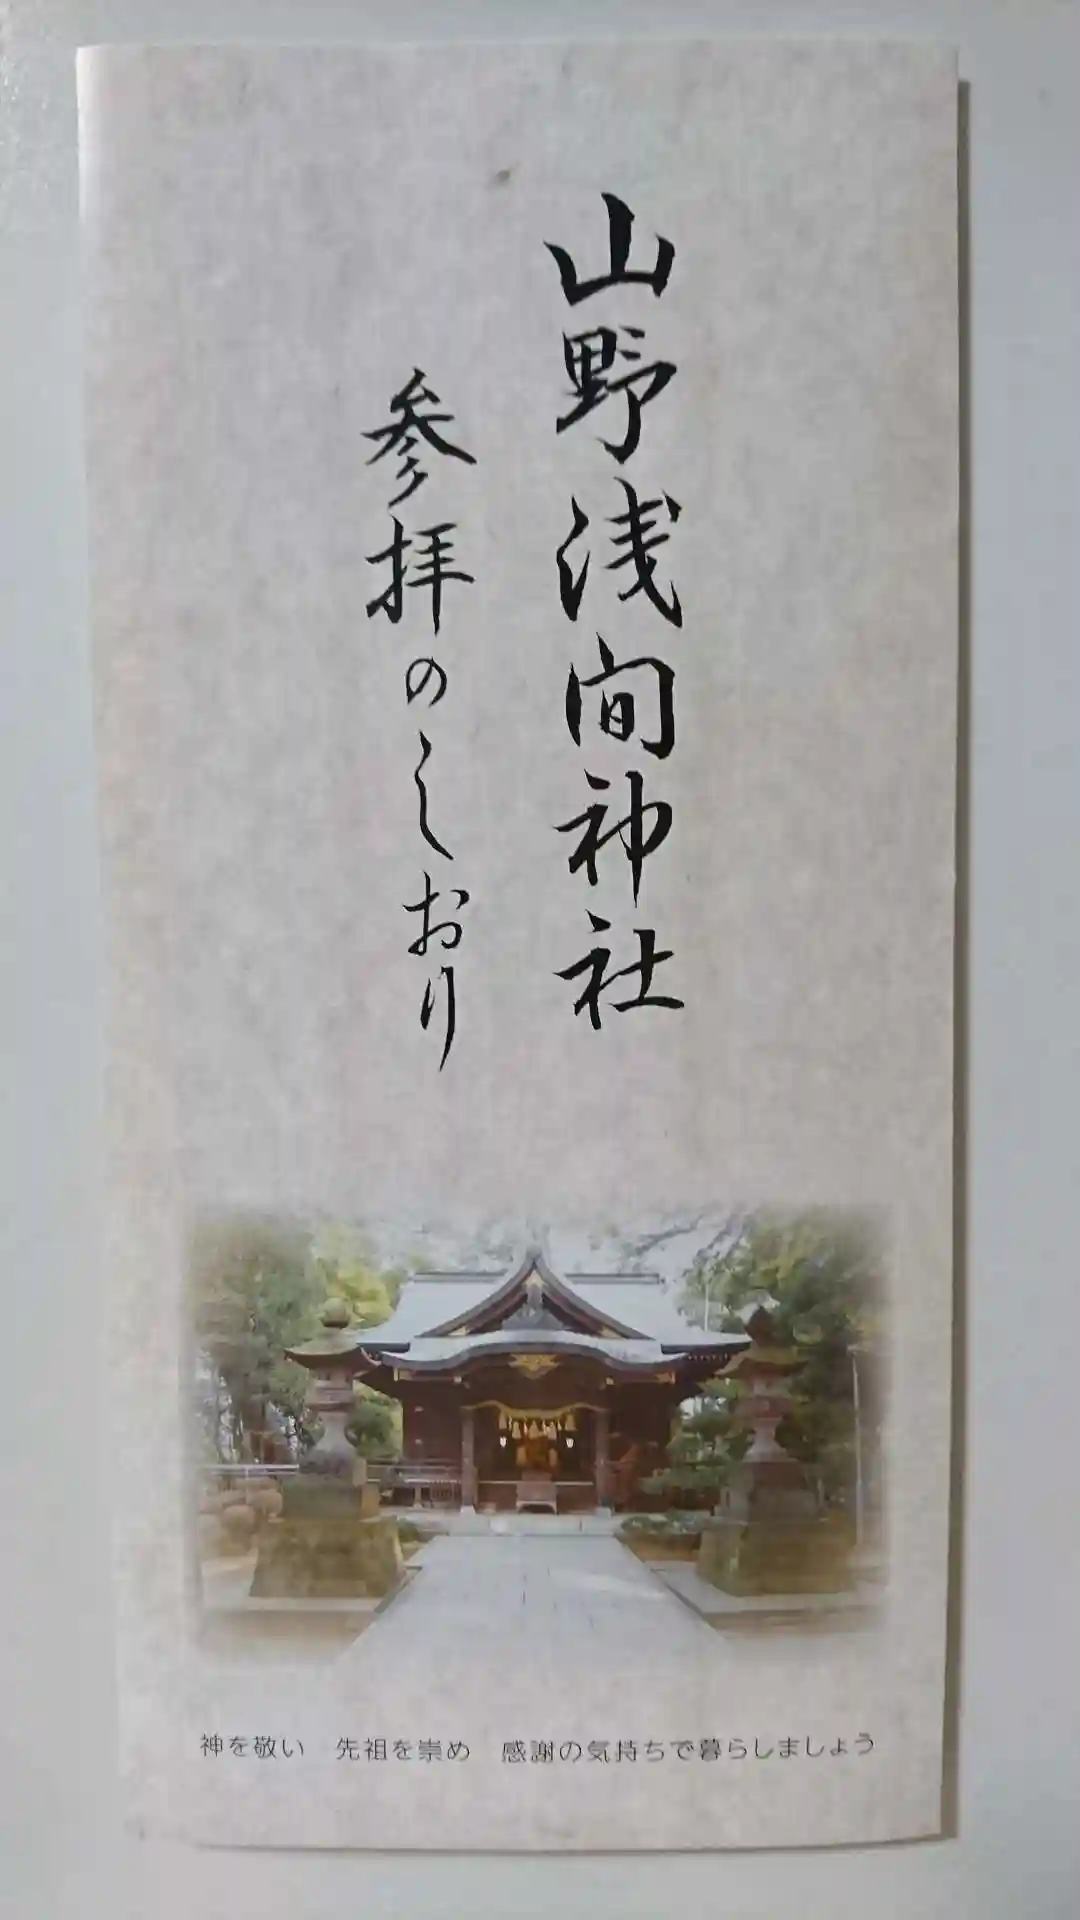 山野浅間神社
参拝のしおり
神を敬い　先祖を崇め　感謝の気持ちで暮らしましょう